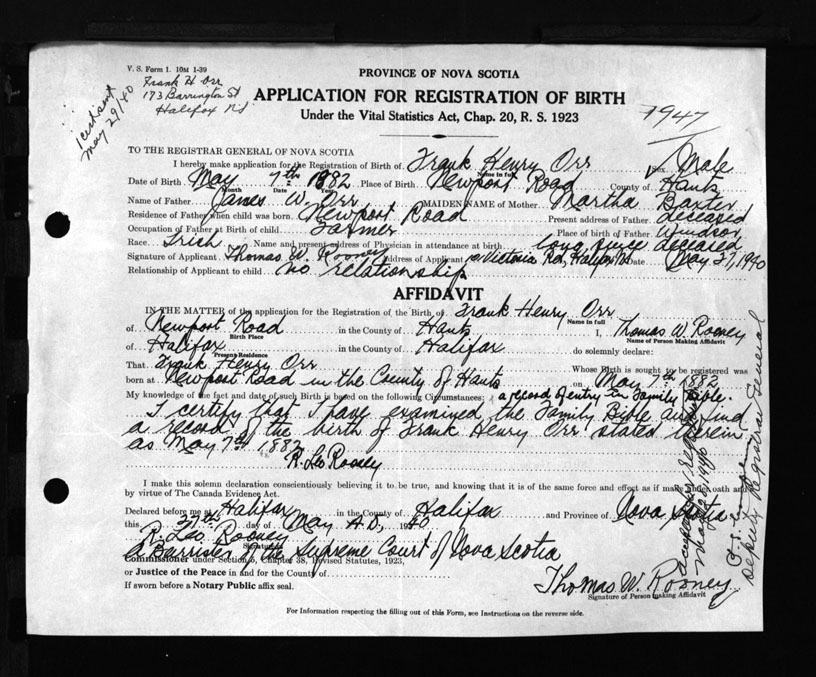 V. S. Form 1. 10M 1-39
Frank H Orr
173 Barrington St
Halifax NS
1 cert sent
May 29/40
PROVINCE OF NOVA SCOTIA
APPLICATION FOR REGISTRATION OF BIRTH
Under the Vital Statistics Act, Chap. 20, R. S. 1923
1947
TO THE REGISTRAR GENERAL OF NOVA SCOTIA
I hereby make application for the Registration of Birth of Frank Henry Orr Sex Male
Name in full
Date of Birth May 7th 1882 Place of Birth Newport Road County of Hants
Month Date Year
Name of Father James W. Orr MAIDEN NAME of Mother Martha Baxter
Residence of Father when child was born Newport Road Present address of Father deceased
Occupation of Father at Birth of child Farmer Place of birth of Father Windsor
Race Irish Name and present address of Physician in attendance at birth long since deceased
Signature of Applicant Thomas W. Rooney Address of Applicant Victoria Rd, Halifax NS Date May 27, 1940
Relationship of Applicant to child no relationship
AFFIDAVIT
IN THE MATTER of the application for the Registration of the Birth of Frank Henry Orr
Name in full
of Newport Road in the County of Hants I, Thomas W. Rooney
Birth Place Name of Person Making Affidavit
of Halifax in the County of Halifax do solemnly declare:
Present Residence
That Frank Henry Orr Whose Birth is sought to be registered was
born at Newport Road in the County of Hants on May 7th 1882
My knowledge of the fact and date of such Birth is based on the following Circumstances: a record of entry in Family Bible.
I certify that I have examined the Family Bible and find
a record of the birth of Frank Henry Orr stated therein
as May 7th, 1882
R. Leo Rooney
I make this solemn declaration conscientiously believing it to be true, and knowing that it is of the same force and effect as if made under oath and
by virtue of The Canada Evidence Act.
Declared before me at Halifax in the County of Halifax and Province of Nova Scotia
this 27th day of May A.D., 1940
R. Leo Rooney
Signature
A Barrister of the Supreme Court of Nova Scotia
Commissioner under Section 5, Chapter 38, Revised Statutes, 1923,
or Justice of the Peace in and for the County of
If sworn before a Notary Public affix seal.
Thomas W. Rooney
Signature of Person making Affidavit
For Information respecting the filling out of this Form, see Instructions on the reverse side.
accepted for registration
May 28, 1940
Deputy Registrar General